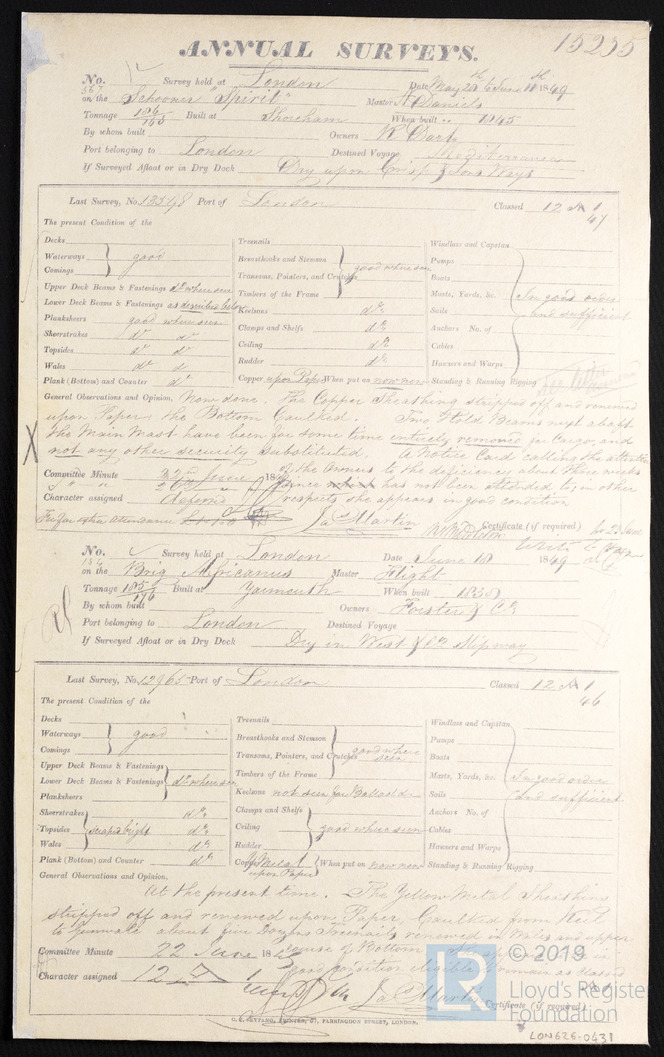 15235
ANNUAL SURVEYS.
No. 567 Survey held at London Date May 1849
on the Schooner "Spirit" Master Daniels
Tonnage Built at Shoreham When built 1845
By whom built Owners R
Port belonging to London Destined Voyage Mediterranean
If Surveyed Afloat or in Dry Dock Dry upon Crisp & Sons Ways
Last Survey, No. 13598 Port of London Classed 12 A 1
47
The present Condition of the
Decks
Waterways good
Comings
Upper Deck Beams & Fastenings do when seen
Lower Deck Beams & Fastenings as described below
Planksheers good when seen
Sheerstrakes do do
Topsides do do
Wales do do
Plank (Bottom) and Counter do
Treenails
Breasthooks and Stemson good when seen
Transoms, Pointers, and Crutches
Timbers of the Frame
Keelsons do
Clamps and Shelfs do
Ceiling do
Rudder do
Copper upon Paper When put on now new
Windlass and Capstan
Pumps
Boats
Masts, Yards, &c. In good order
Sails and sufficient
Anchors No. of
Cables
Hausers and Warps
Standing & Running Rigging
General Observations and Opinion, Now done. The Copper Sheathing stripped off and renewed
upon Paper, the Bottom Caulked. Two Hold Beams next abaft
X the Main Mast have been for some time entirely removed for Cargo, and
not any other security substituted. A Notice Card calling the attention
of the Owners to the deficiency about three weeks
Committee Minute June 184
since has not been attended to, in other
Character assigned deferred respects she appears in good condition
Fee for extra attendance Ja Martin Certificate (if required)
No. 154 Survey held at London Date June 18 1849
on the Brig Africanus Master Flight
Tonnage Built at Yarmouth When built 1838
By whom built Owners Forster & Co
Port belonging to London Destined Voyage
If Surveyed Afloat or in Dry Dock Dry in West & Co Slipway
Last Survey, No. 12965 Port of London Classed 12 A 1
46
The present Condition of the
Decks
Waterways good
Comings
Upper Deck Beams & Fastenings
Lower Deck Beams & Fastenings do when seen
Planksheers
Sheerstrakes do
Topsides scraped bright do
Wales do
Plank (Bottom) and Counter do
Treenails
Breasthooks and Stemson
Transoms, Pointers, and Crutches good where seen
Timbers of the Frame
Keelsons not seen for Ballast
Clamps and Shelfs
Ceiling good when seen
Rudder
Copper Y Metal upon Paper When put on now new
Windlass and Capstan
Pumps
Boats
Masts, Yards, &c. In good order
Sails and sufficient
Anchors No. of
Cables
Hausers and Warps
Standing & Running Rigging
General Observations and Opinion,
At the present time. The Yellow Metal Sheathing
stripped off and renewed upon Paper, Caulked from Keel
to Gunwale about five dozen Treenails renewed in Wales and upper
Committee Minute 22 June 184 course of Bottom
good condition eligible as classed
Character assigned 12 A 1
Ja Martin Certificate (if required)
C. F. SEYFANG, PRINTER, 57, FARRINGDON STREET, LONDON.
© 2019
Lloyd's Register
Foundation
LON626-0431